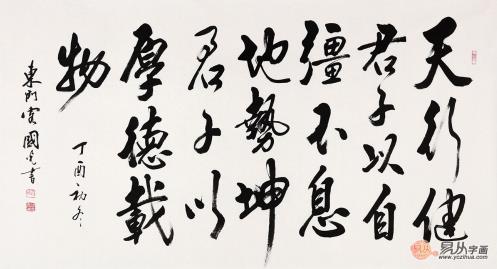 天行健
君子以自
彊不息
地勢坤
君子以
厚德載
物
丁酉初冬
國光書
易从字画
www.yczihua.com